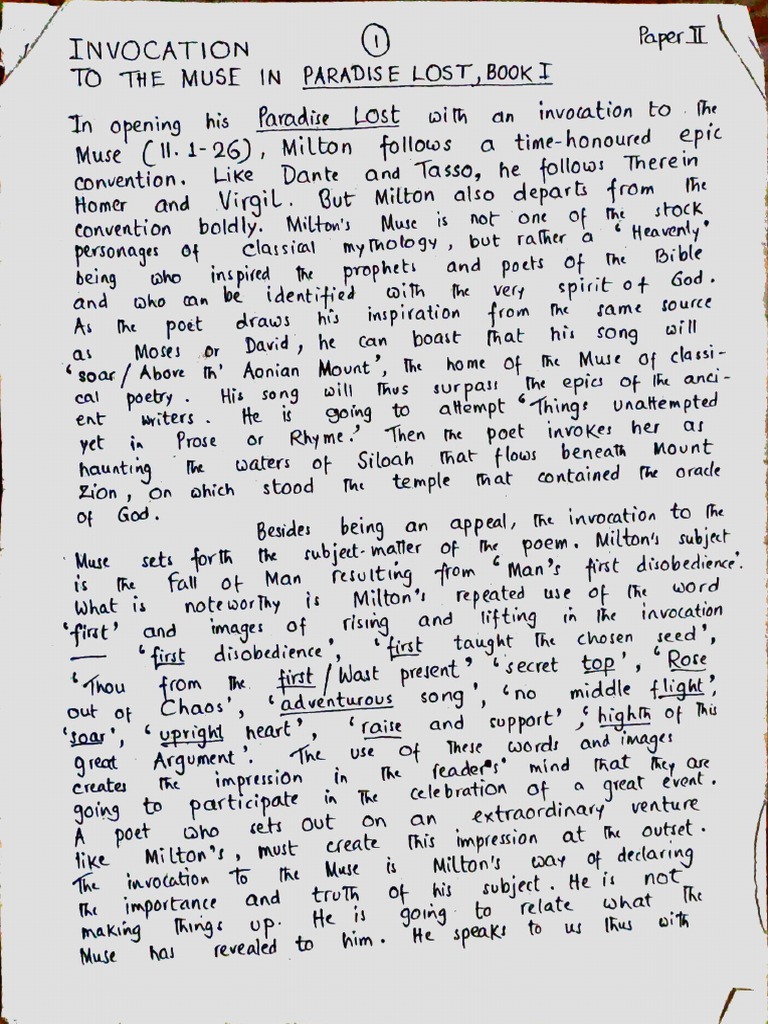 INVOCATION
1
Paper II
TO THE MUSE IN PARADISE LOST, BOOK I
In opening his Paradise Lost with an invocation to the
Muse (ll. 1-26), Milton follows a time-honoured epic
convention. Like Dante and Tasso, he follows Therein
Homer and Virgil. But Milton also departs from the
convention boldly. Milton's Muse is not one of the stock
personages of classical mythology, but rather a 'Heavenly'
being who inspired the prophets and poets of the Bible
and who can be identified with the very spirit of God.
As the poet draws his inspiration from the same source
as Moses or David, he can boast that his song will
'soar/Above th' Aonian Mount', the home of the Muse of classi-
cal poetry. His song will thus surpass the epics of the anci-
ent writers. He is going to attempt 'Things unattempted
yet in Prose or Rhyme.' Then the poet invokes her as
haunting the waters of Siloah that flows beneath Mount
Zion, on which stood the temple that contained the oracle
of God.
Besides being an appeal, the invocation to the
Muse sets forth the subject-matter of the poem. Milton's subject
is the Fall of Man resulting from 'Man's first disobedience'.
What is noteworthy is Milton's repeated use of the word
'first' and images of rising and lifting in the invocation
— 'first disobedience', 'first taught the chosen seed',
'Thou from the first/Wast present' 'secret top', 'Rose
out of Chaos', 'adventurous song', 'no middle flight',
'soar', 'upright heart', 'raise and support', 'highth of this
great Argument'. The use of these words and images
creates the impression in the reader's mind that they are
going to participate in the celebration of a great event.
A poet who sets out on an extraordinary venture
like Milton's, must create this impression at the outset.
The invocation to the Muse is Milton's way of declaring
the importance and truth of his subject. He is not
making things up. He is going to relate what the
Muse has revealed to him. He speaks to us thus with